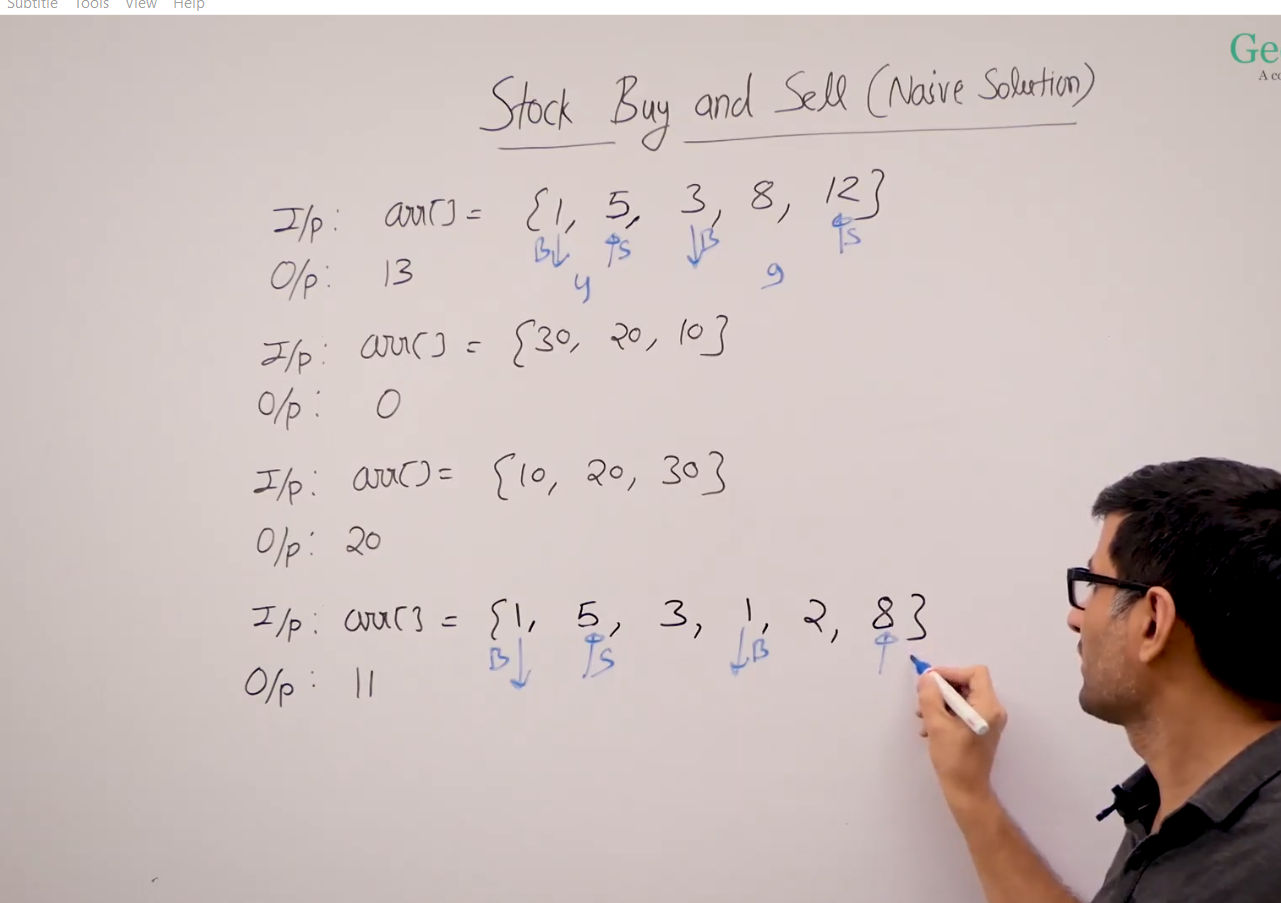 Subtitle Tools View Help
Ge
A co
Stock Buy and Sell (Naive Solution)
I/p: arr[] = {1, 5, 3, 8, 12}
B↓ ↑S ↓B ↑S
O/p: 13
4 9
I/p: arr[] = {30, 20, 10}
O/p: 0
I/p: arr[] = {10, 20, 30}
O/p: 20
I/p: arr[] = {1, 5, 3, 1, 2, 8}
B↓ ↑S ↓B ↑
O/p: 11